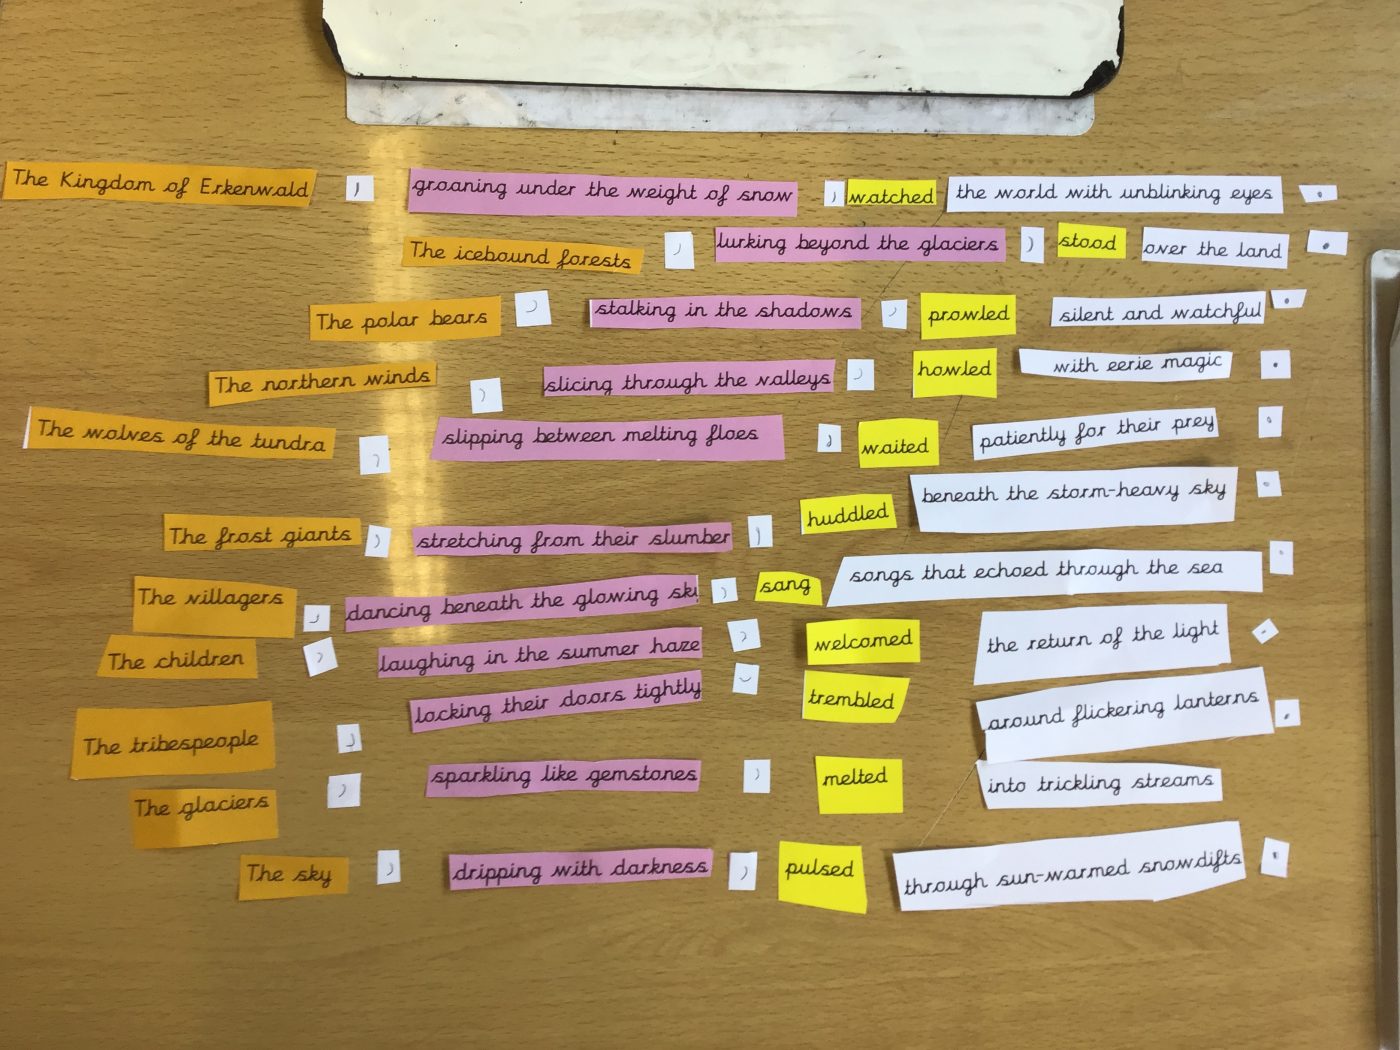 The Kingdom of Erkenwald , groaning under the weight of snow , watched the world with unblinking eyes .
The icebound forests , lurking beyond the glaciers , stood over the land .
The polar bears , stalking in the shadows , prowled silent and watchful .
The northern winds , slicing through the valleys , howled with eerie magic .
The wolves of the tundra , slipping between melting floes , waited patiently for their prey .
The frost giants , stretching from their slumber , huddled beneath the storm-heavy sky .
The villagers , dancing beneath the glowing sky , sang songs that echoed through the sea .
The children , laughing in the summer haze , welcomed the return of the light .
The tribespeople , locking their doors tightly , trembled around flickering lanterns .
The glaciers , sparkling like gemstones , melted into trickling streams
The sky , dripping with darkness , pulsed through sun-warmed snowdifts .